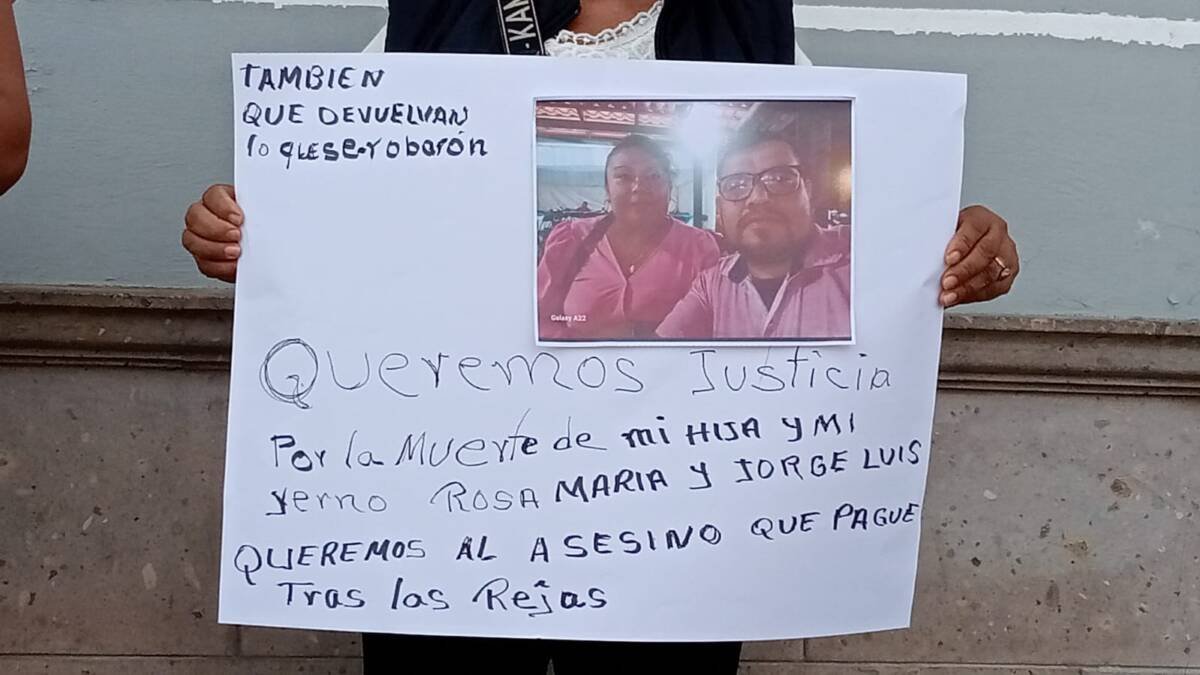 -KAN
TAMBIEN
QUE DEVUELVAN
lo que se robarón
Galaxy A22
Queremos Justicia
Por la Muerte de mi HIJA Y MI
yerno ROSA MARIA Y JORGE LUIS
QUEREMOS AL ASESINO QUE PAGUE
Tras las Rejas